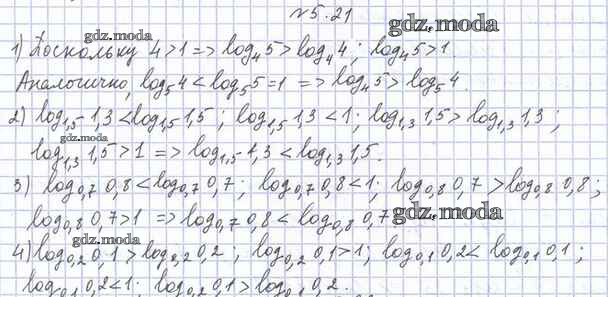 №5.21
gdz.moda
1) Поскольку 4>1 => log₄5 > log₄4; log₄5>1.
Аналогично, log₅4 < log₅5=1 => log₄5 > log₅4.
gdz.moda
2) log₁,₅ 1,3 < log₁,₅ 1,5; log₁,₅ 1,3 < 1; log₁,₃ 1,5 > log₁,₃ 1,3;
gdz.moda
log₁,₃ 1,5 > 1 => log₁,₅ 1,3 < log₁,₃ 1,5.
3) log₀,₇ 0,8 < log₀,₇ 0,7; log₀,₇ 0,8 < 1; log₀,₈ 0,7 > log₀,₈ 0,8;
log₀,₈ 0,7 > 1 => log₀,₇ 0,8 < log₀,₈ 0,7
gdz.moda
gdz.moda
4) log₀,₂ 0,1 > log₀,₂ 0,2; log₀,₂ 0,1 > 1; log₀,₁ 0,2 < log₀,₁ 0,1;
log₀,₁ 0,2 < 1; log₀,₂ 0,1 > log₀,₁ 0,2.